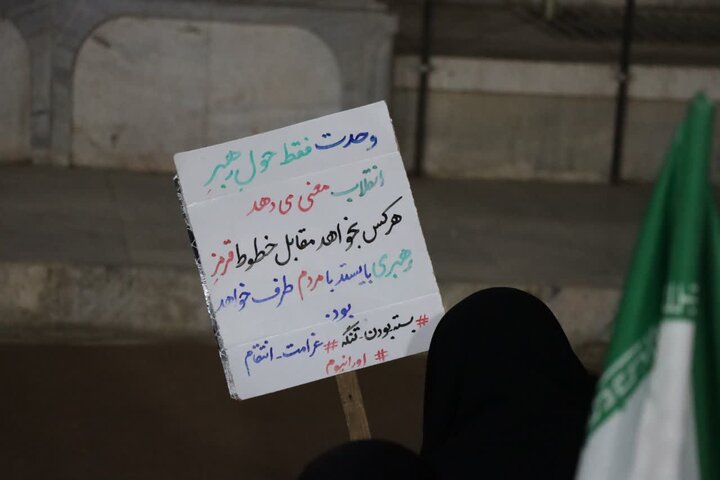 وحدت فقط حول رهبرِ
انقلاب معنی می دهد
هرکس بخواهد مقابل خطوط قرمزِ
رهبری بایستد با مردم طرف خواهد
بود.
#بسته_بودن_تنگه #غرامت_انتقام
#اورانیوم